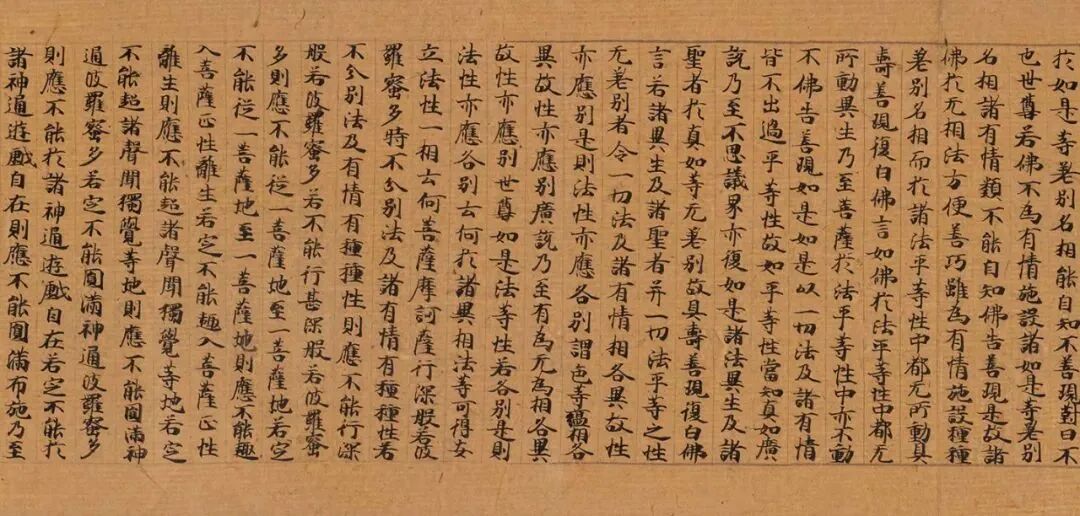 於如是等差別名相能自知不善現對曰不
也世尊若佛不為有情施設諸如是等差別
名相諸有情類不能自知佛告善現是故諸
佛於无相法方便善巧雖為有情施設種種
差別名相而於諸法平等性中都无所動具
壽善現復白佛言如佛於法平等性中都无
所動異生乃至菩薩於法平等性中亦不動
不佛告善現如是如是以一切法及諸有情
皆不出過平等性故如平等性當知真如廣
說乃至不思議界亦復如是諸法異生及諸
聖者於真如等无差別故具壽善現復白佛
言若諸異生及諸聖者并一切法平等之性
无差別者今一切法及諸有情相各異故性
亦應別是則法性亦應各別謂色等蘊相各
異故性亦應別廣說乃至有為无為相各異
故性亦應別世尊如是法等性若各別是則
法性亦應各別云何於諸異相法等可得安
立法性一相云何菩薩摩訶薩行深般若波
羅蜜多時不分別法及諸有情有種種性若
不分別法及有情有種種性則應不能行深
般若波羅蜜多若不能行甚深般若波羅蜜
多則應不能從一菩薩地至一菩薩地若定
不能從一菩薩地至一菩薩地則應不能趣
入菩薩正性離生若定不能趣入菩薩正性
離生則應不能超諸聲聞獨覺等地若定
不能超諸聲聞獨覺等地則應不能圓滿神
通波羅蜜多若定不能圓滿神通波羅蜜多
則應不能於諸神通遊戲自在若定不能於
諸神通遊戲自在則應不能圓滿布施乃至